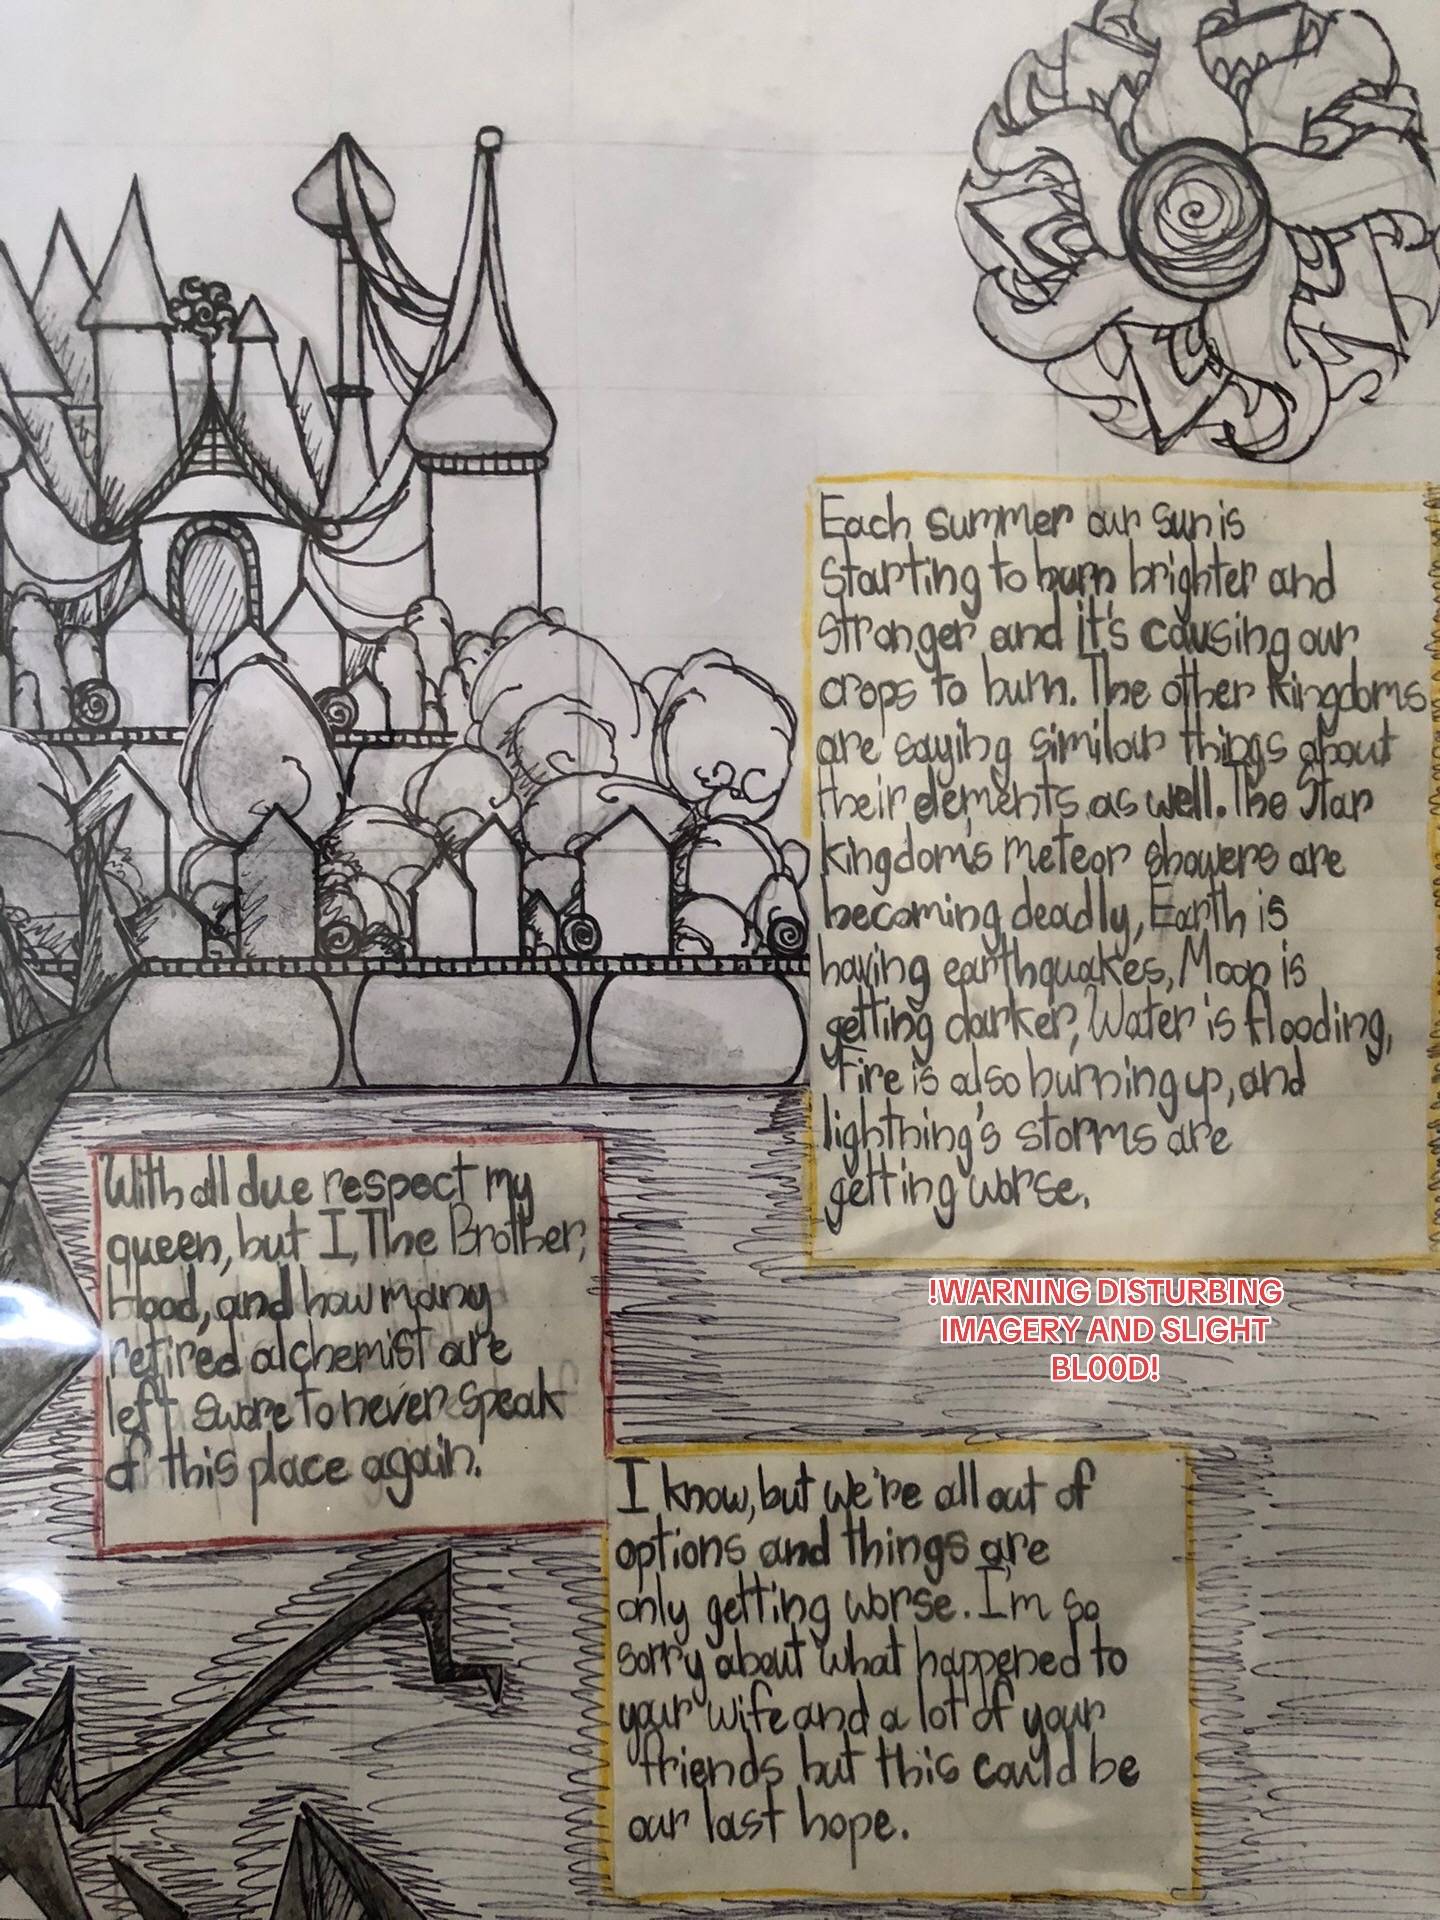 Each summer our Sun is
starting to burn brighter and
stronger and it's causing our
crops to burn. The other kingdoms
are saying similar things about
their elements as well. The Star
kingdom's meteor showers are
becoming deadly, Earth is
having earthquakes, Moon is
getting darker, Water is flooding,
Fire is also burning up, and
lightning's storms are
getting worse.
With all due respect my
queen, but I, The Brother,
Hood, and how many
retired alchemist are
left swore to never speak
of this place again.
!WARNING DISTURBING
IMAGERY AND SLIGHT
BL00D!
I know, but we're all out of
options and things are
only getting worse. I'm so
sorry about what happened to
your wife and a lot of your
friends but this could be
our last hope.